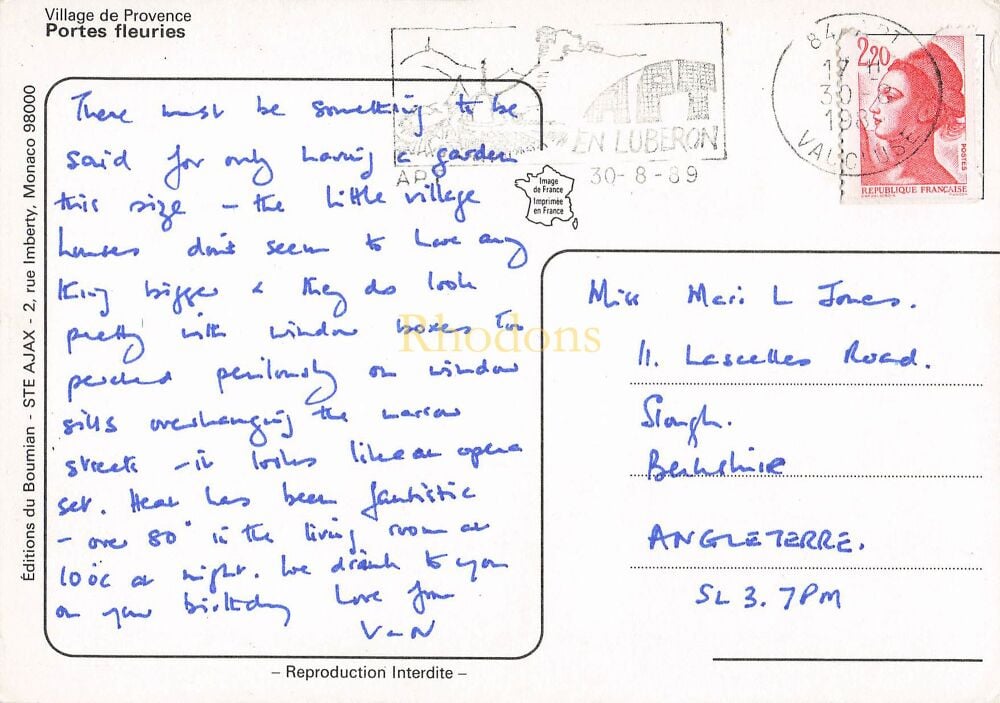 Village de Provence
Portes fleuries
Éditions du Boumian - STE AJAX - 2, rue Imberty, Monaco 98000
There must be something to be
said for only having a garden
this size - the little village
houses don't seem to have any
thing bigger & they do look
pretty with window boxes too
perched perilously on window
sills overhanging the narrow
streets - it looks like an opera
set. Heat has been fantistic
- over 80° in the living room at
10 o'c at night. We drank to you
on your birthday Love from
V - N
- Reproduction Interdite -
EN LUBERON
AP
30-8-89
Image
de France
Imprimée
en France
84 APT
17 H
30-8
198
VAUCLUSE
2,20
POSTES
REPUBLIQUE FRANÇAISE
Rhodons
Miss Mari L Jones.
11. Lascelles Road.
Slough.
Berkshire
ANGLETERRE.
SL 3. 7PM